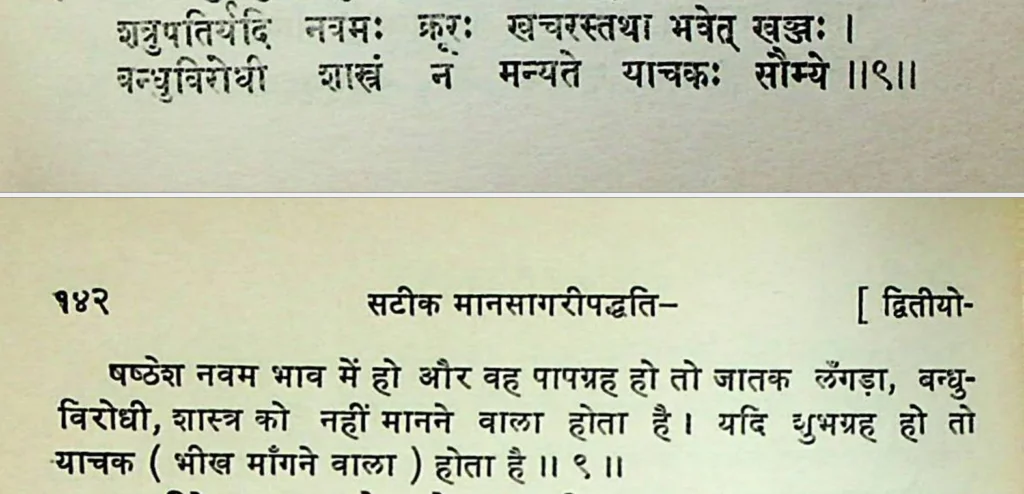 शत्रुपतिर्यदि नवमः क्रूरः खचरस्तथा भवेत् खञ्जः ।
बन्धुविरोधी शास्त्रं न मन्यते याचकः सौम्ये ॥९॥
१४२ सटीक मानसागरीपद्धति– [ द्वितीयो-
षष्ठेश नवम भाव में हो और वह पापग्रह हो तो जातक लँगड़ा, बन्धु-
विरोधी, शास्त्र को नहीं मानने वाला होता है । यदि शुभग्रह हो तो
याचक ( भीख माँगने वाला ) होता है ॥ ९ ॥